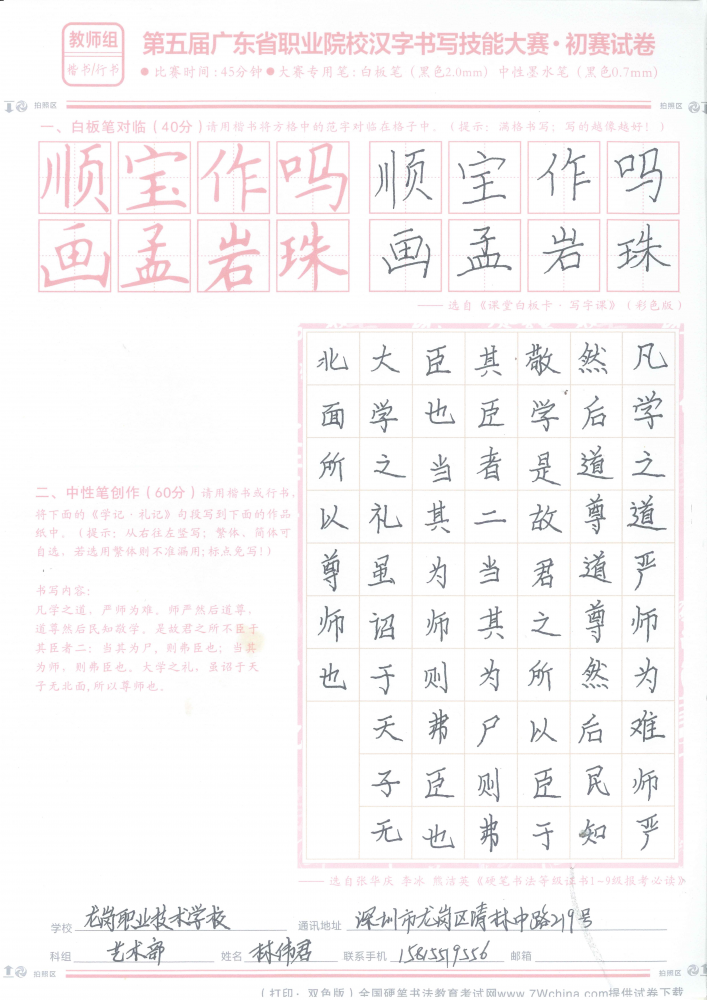 教师组
楷书/行书
第五届广东省职业院校汉字书写技能大赛·初赛试卷
●比赛时间:45分钟●大赛专用笔:白板笔（黑色2.0mm）中性墨水笔（黑色0.7mm）
拍照区
拍照区
一、白板笔对临（40分）请用楷书将方格中的范字对临在格子中。（提示：满格书写；写的越像越好！）
顺宝作吗
顺宝作吗
画孟岩珠
画孟岩珠
——选自《课堂白板卡·写字课》（彩色版）
二、中性笔创作（60分）请用楷书或行书,
将下面的《学记·礼记》句段写到下面的作品
纸中。（提示：从右往左竖写；繁体、简体可
自选，若选用繁体则不准漏用;标点免写！）
书写内容：
凡学之道，严师为难。师严然后道尊，
道尊然后民知敬学。是故君之所不臣于
其臣者二：当其为尸，则弗臣也；当其
为师，则弗臣也。大学之礼，虽诏于天
子无北面,所以尊师也。
凡学之道严师为难师严
然后道尊道尊然后民知
敬学是故君之所以臣于
其臣者二当其为尸则弗
臣也当其为师则弗臣也
大学之礼虽诏于天子无
北面所以尊师也
——选自张华庆 李冰 熊洁英《硬笔书法等级证书1~9级报考必读》
学校 龙岗职业技术学校 通讯地址 深圳市龙岗区清林中路219号
科组 艺术部 姓名 林伟君 联系手机 邮箱
拍照区
拍照区
（打印：双色版）全国硬笔书法教育考试网www.7Wchina.com提供试卷下载